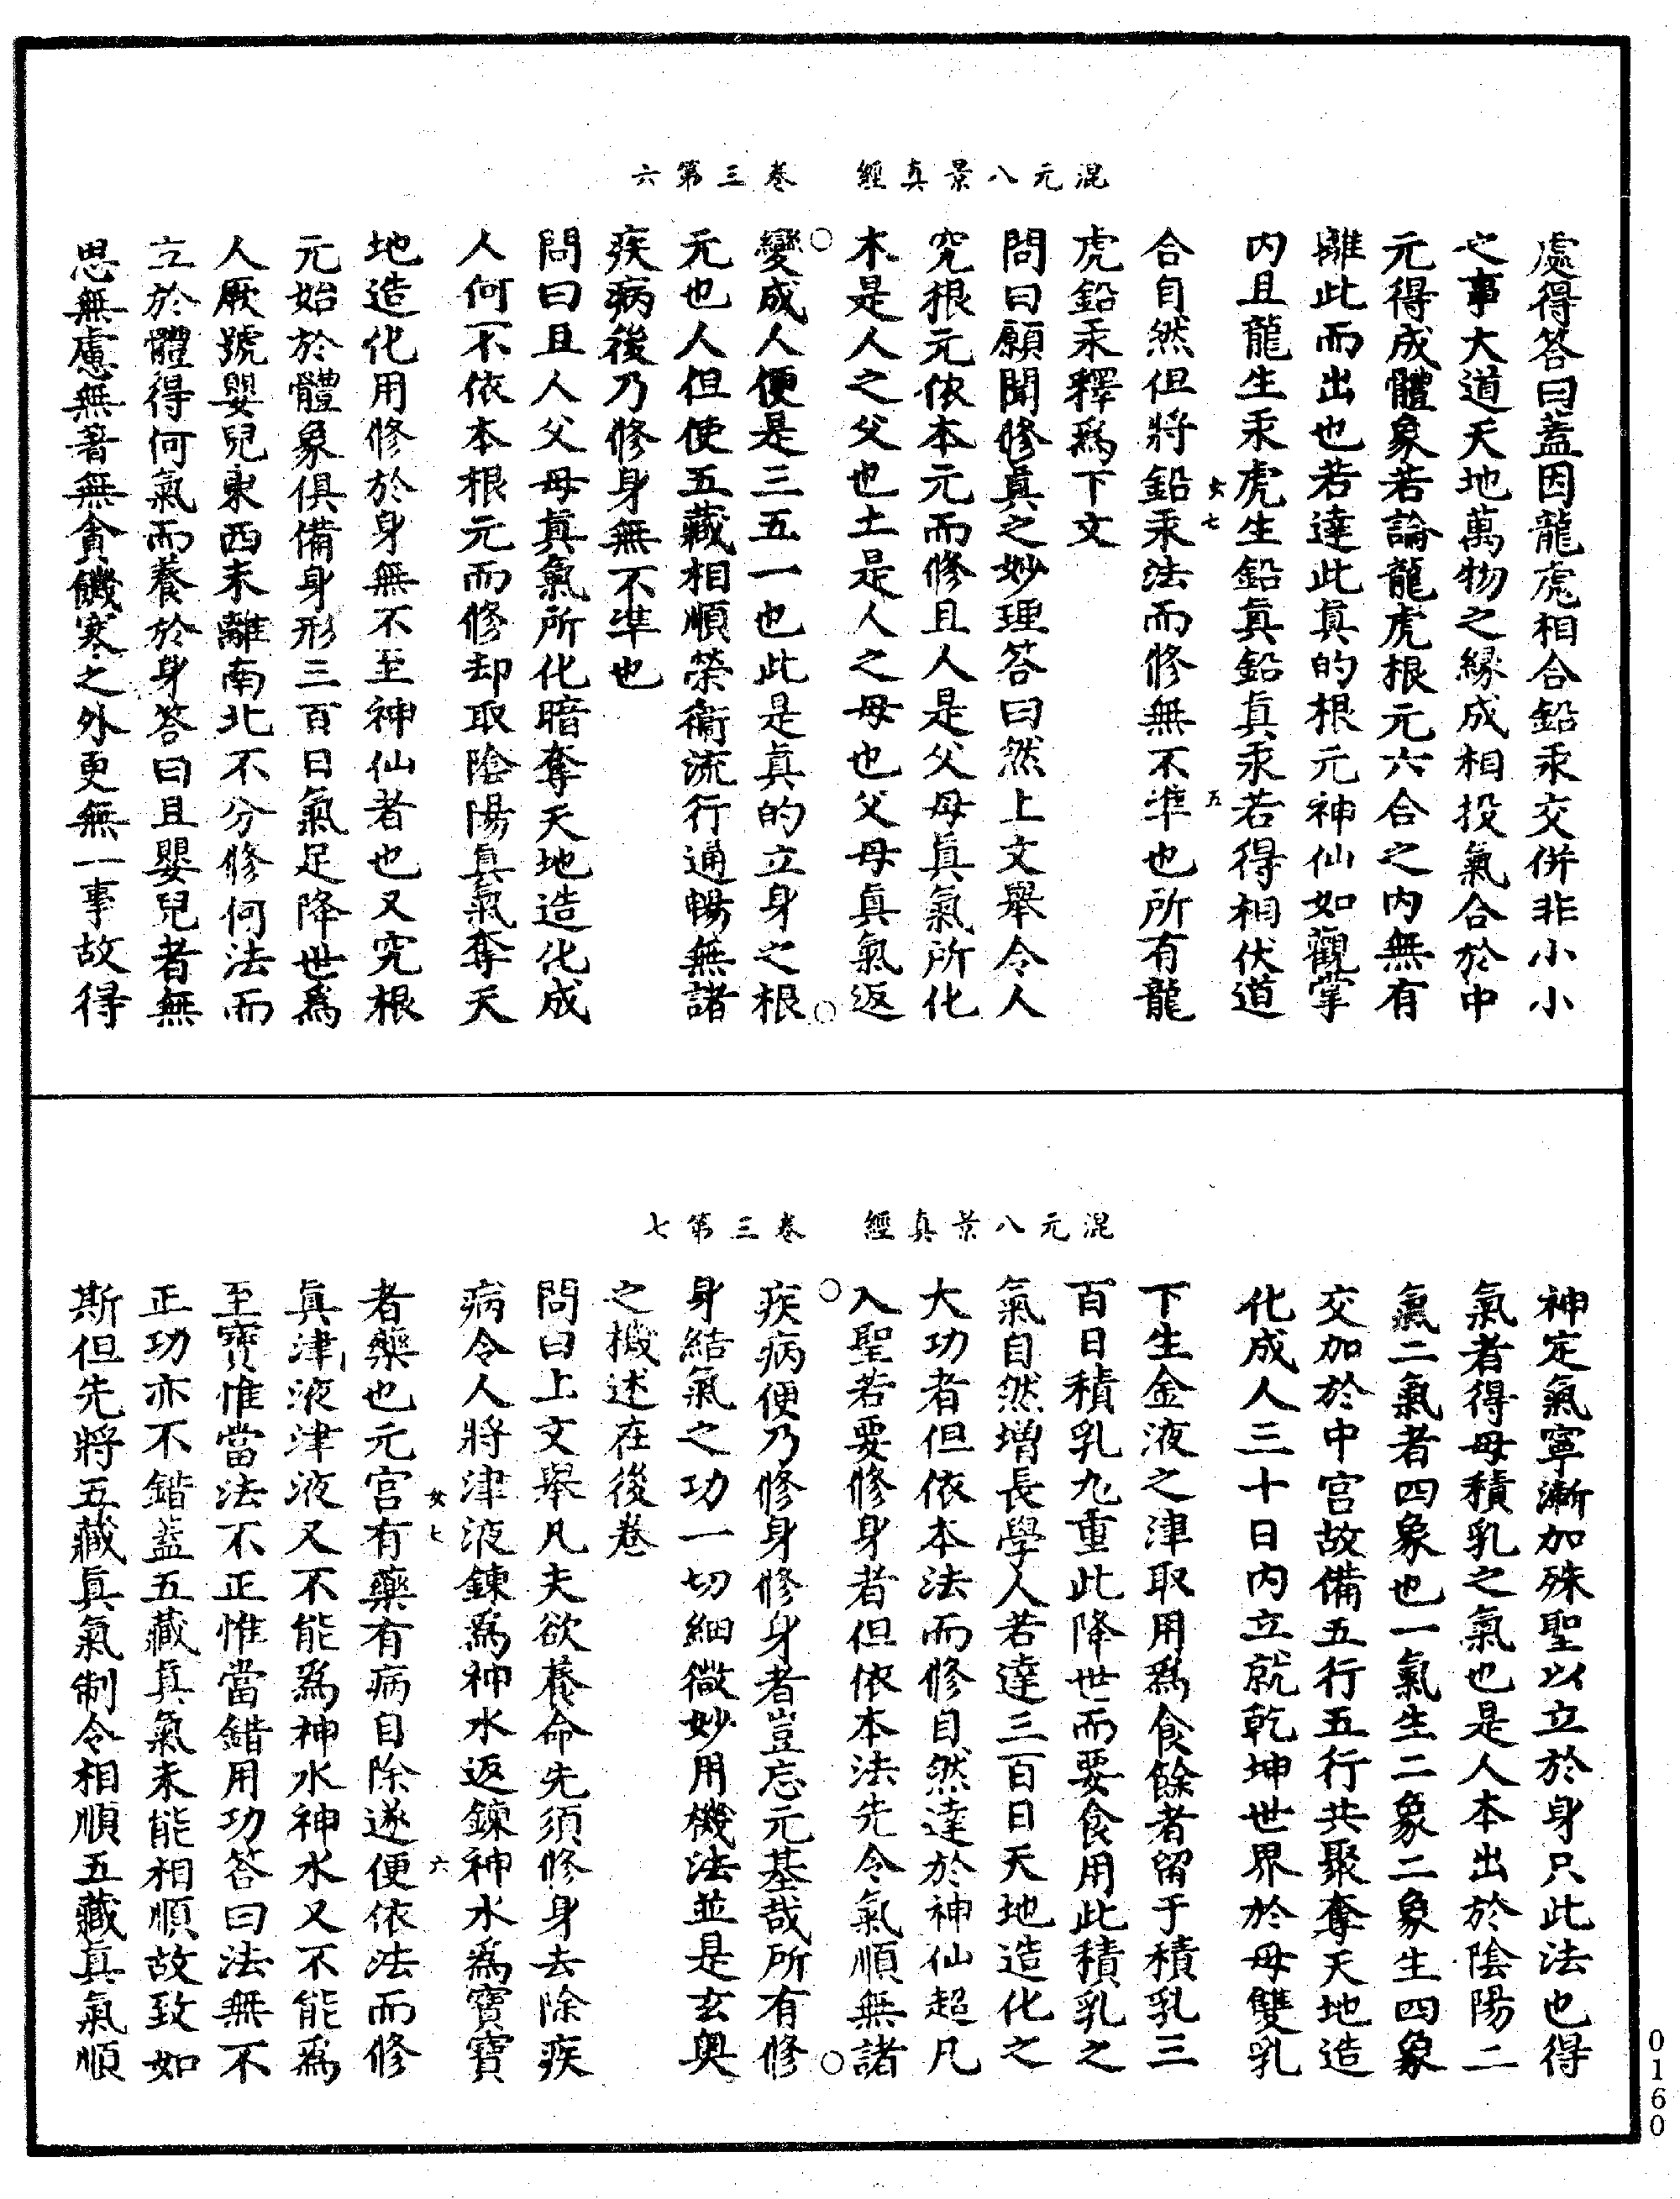 混元八景真經　卷三第六
處得答曰蓋因龍虎相合鉛汞交併非小小
之事大道天地萬物之緣成相投氣合於中
元得成體象若論龍虎根元六合之內無有
離此而出也若達此真的根元神仙如觀掌
內且龍生汞虎生鉛真鉛真汞若得相伏道
女七　五
合自然但將鉛汞法而修無不準也所有龍
虎鉛汞釋為下文
問曰願聞修真之妙理答曰然上文舉令人
究根元依本元而修且人是父母真氣所化
木是人之父也土是人之母也父母真氣返
○　○
變成人便是三五一也此是真的立身之根
元也人但使五藏相順榮衛流行通暢無諸
疾病後乃修身無不準也
問曰且人父母真氣所化暗奪天地造化成
人何不依本根元而修却取陰陽真氣奪天
地造化用修於身無不至神仙者也又究根
元始於體象俱備身形三百日氣足降世為
人厥號嬰兒東西未離南北不分修何法而
立於體得何氣而養於身答曰且嬰兒者無
思無慮無著無貪饑寒之外更無一事故得
混元八景真經　卷三第七
神定氣寧漸加殊聖以立於身只此法也得
氣者得母積乳之氣也是人本出於陰陽二
氣二氣者四象也一氣生二象二象生四象
交加於中宮故備五行五行共聚奪天地造
化成人三十日內立就乾坤世界於母雙乳
下生金液之津取用為食餘者留于積乳三
百日積乳九重此降世而要食用此積乳之
氣自然增長學人若達三百日天地造化之
大功者但依本法而修自然達於神仙超凡
入聖若要修身者但依本法先令氣順無諸
○　○
疾病便乃修身修身者豈忘元基哉所有修
身結氣之功一切細微妙用機法並是玄奧
之機述在後卷
問曰上文舉凡夫欲養命先須修身去除疾
病令人將津液鍊為神水返鍊神水為寶寶
女七　六
者藥也元宮有藥有病自除遂便依法而修
真津液津液又不能為神水神水又不能為
至寶惟當法不正惟當錯用功答曰法無不
正功亦不錯蓋五藏真氣未能相順故致如
斯但先將五藏真氣制令相順五藏真氣順
0160